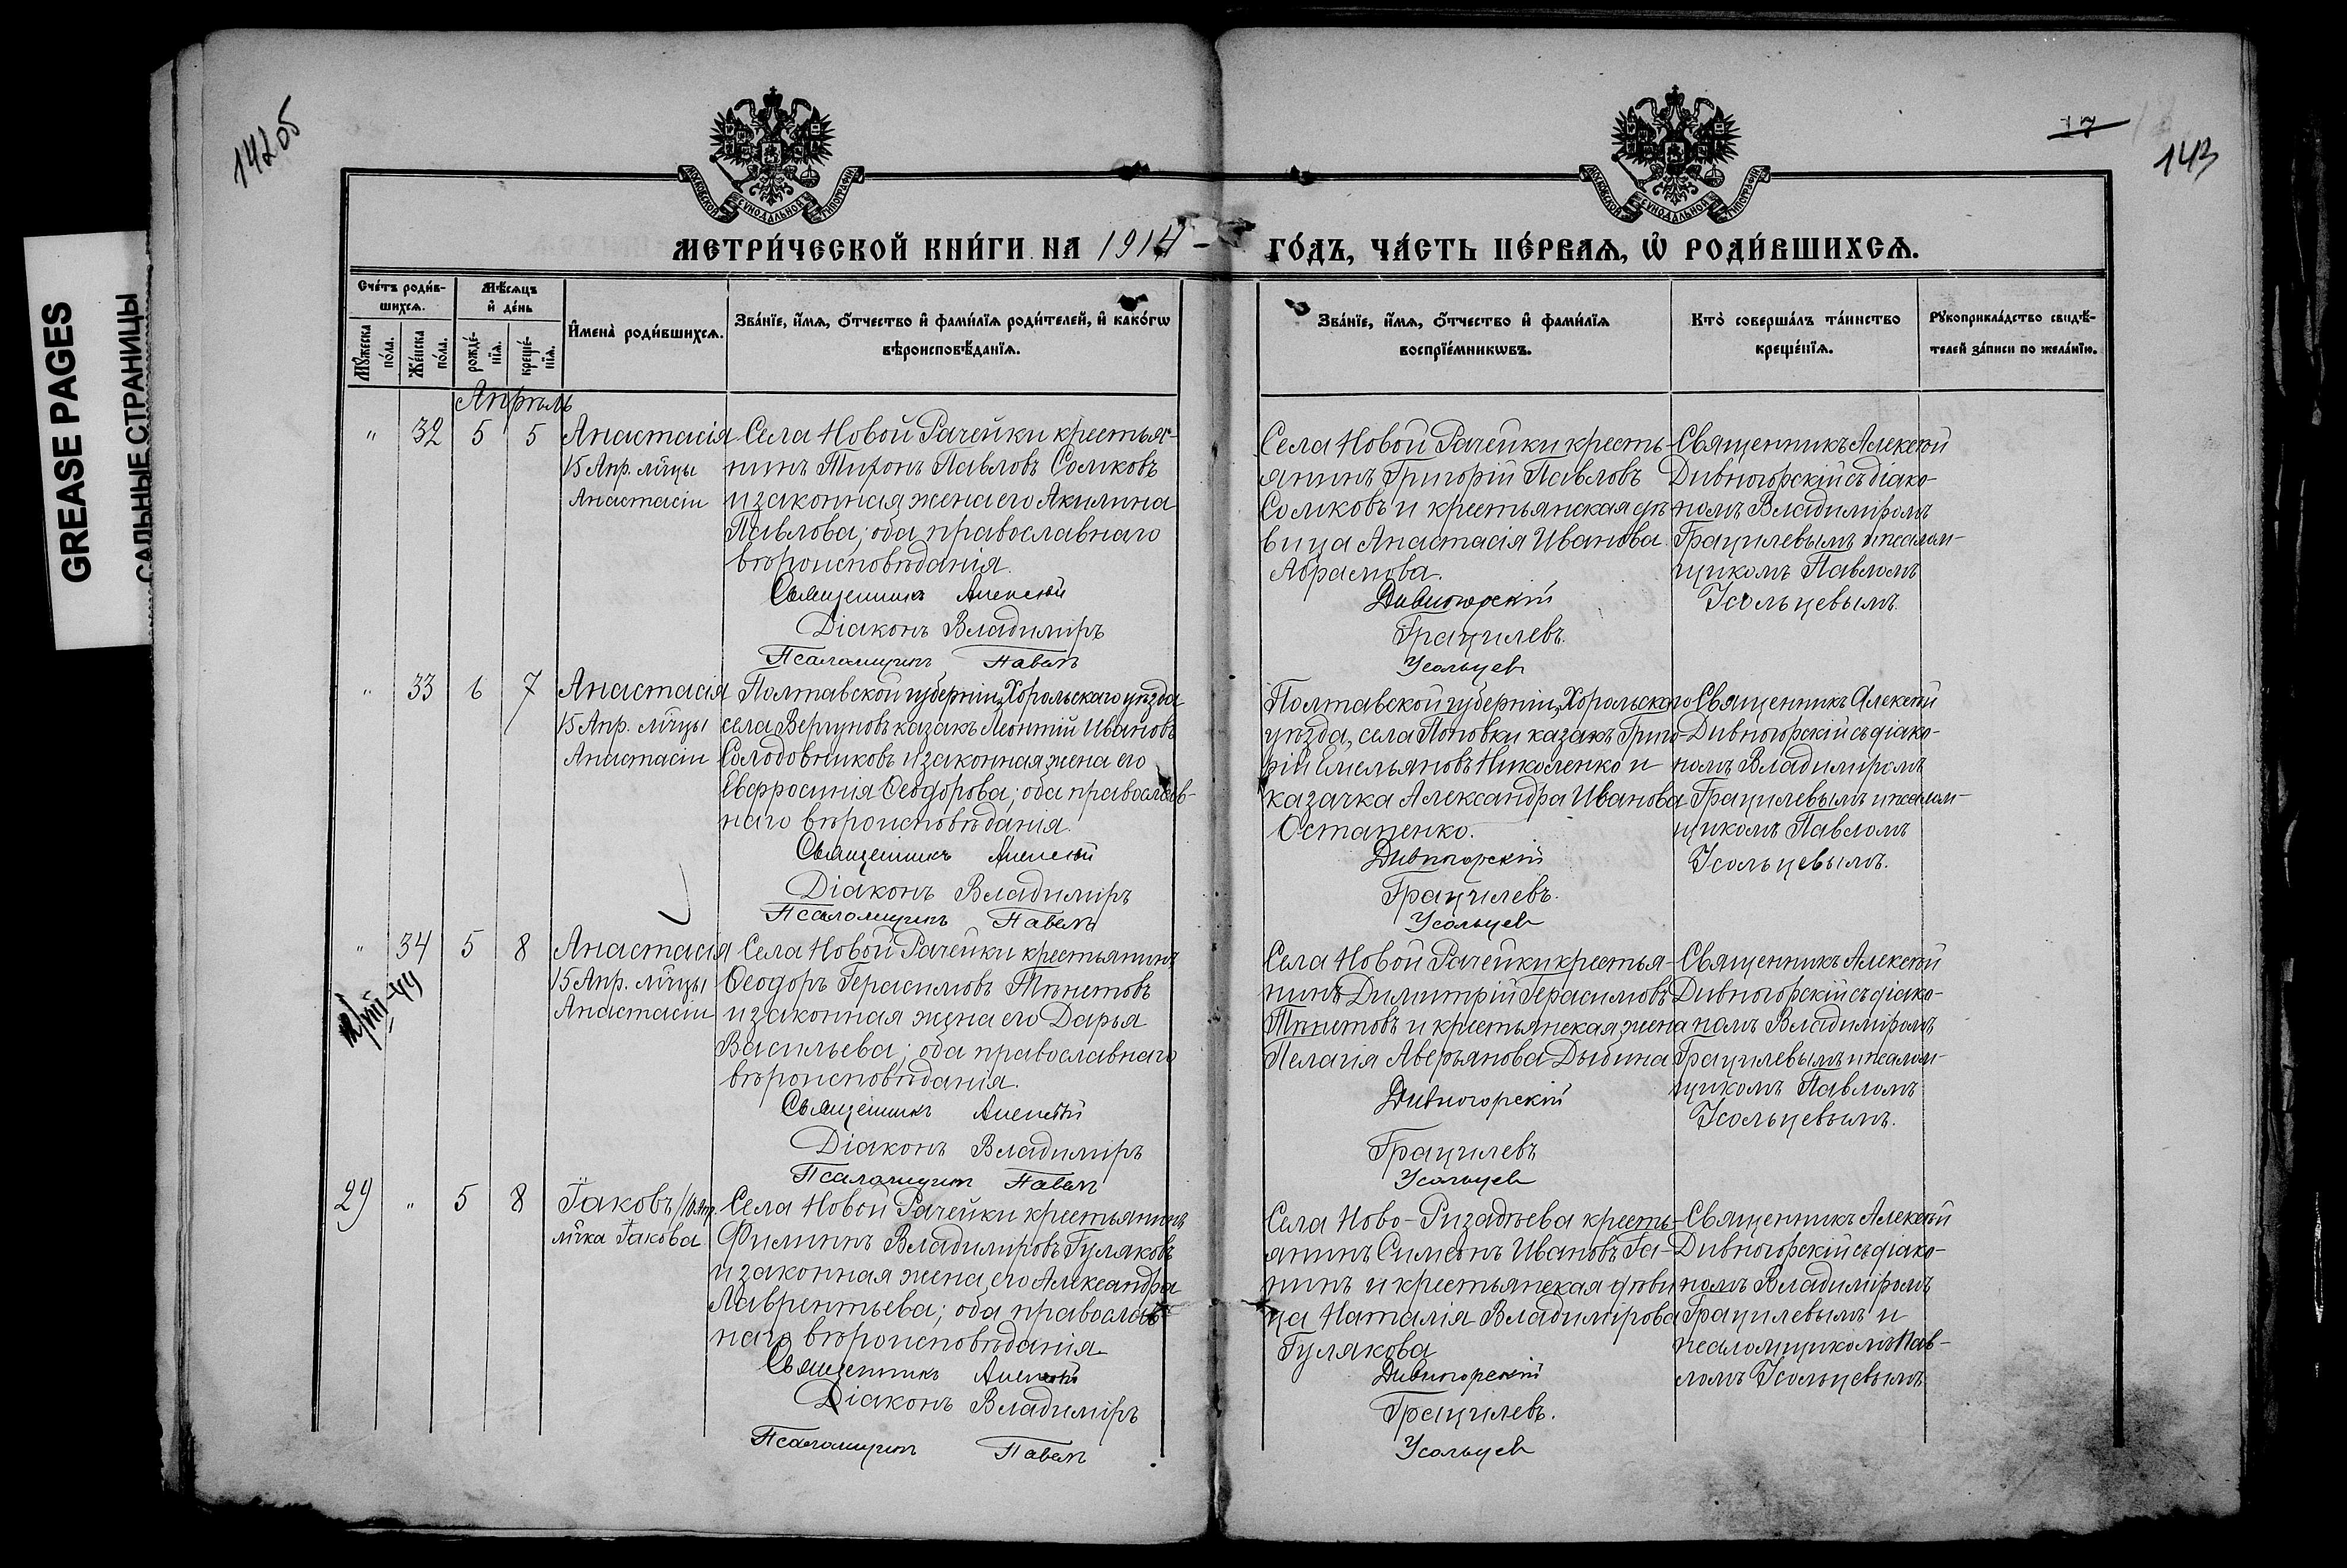 GREASE PAGES
САЛЬНЫЕ СТРАНИЦЫ
142об
17
143
МОСКОВСКОЙ СѴНОДАЛЬНОЙ ТИПОГРАФІИ
МОСКОВСКОЙ СѴНОДАЛЬНОЙ ТИПОГРАФІИ
МЕТРИ́ЧЕСКОЙ КНИ́ГИ НА 1914 - ГО́ДЪ, ЧА́СТЬ ПЕ́РВАѦ, Ѡ РОДИ́ВШИХСѦ.
Сче́тъ роди́в-
шихсѧ.
Мꙋ́жеска
по́ла.
Же́нска
по́ла.
Мѣ́сѧцъ
и҆ де́нь
рожде́-
нїѧ.
креще́-
нїѧ.
И҆мена̀ роди́вшихсѧ.
Зва́нїе, и҆́мѧ, ѻ҆́тчество и҆ фами́лїѧ роди́телей, и҆ како́гѡ
вѣроисповѣ́данїѧ.
Зва́нїе, и҆́мѧ, ѻ҆́тчество и҆ фами́лїѧ
воспрїе́мникѡвъ.
Кто̀ соверша́лъ та́инство
креще́нїѧ.
Рꙋкоприкла́дство свидѣ́-
телей за́писи по жела́нїю.
Апрѣль
" 32 5 5
Анастасія
15 Апр. м̃цы
Анастасіи
Села Новой Рачейки крестья-
нинъ Тихонъ Павловъ Сомковъ
и законная жена его Акилина
Павлова; оба православнаго
вѣроисповѣданія.
Священникъ Алексѣй
Діаконъ Владиміръ
Псаломщикъ Павелъ
Села Новой Рачейки кресть-
янинъ Григорій Павловъ
Сомковъ и крестьянская дѣ-
вица Анастасія Иванова
Абрамова.
Дивногорскій
Грацилевъ.
Усольцев
Священникъ Алексѣй
Дивногорскій съ діако-
номъ Владиміромъ
Грацилевымъ и псалом-
щикомъ Павломъ
Усольцевымъ.
" 33 6 7
Анастасія
15 Апр. м̃цы
Анастасіи
Полтавской губерніи, Хорольскаго уѣзда
села Вергуновъ казакъ Леонтій Ивановъ
Солодовниковъ и законная жена его
Евфросинія Ѳеодорова; оба православ-
наго вѣроисповѣданія.
Священникъ Алексѣй
Діаконъ Владиміръ
Псаломщикъ Павелъ
Полтавской губерніи, Хорольскаго
уѣзда, села Поповки казакъ Григо-
рій Емельяновъ Николенко и
казачка Александра Иванова
Остапенко.
Дивногорскій
Грацилевъ.
Усольцев
Священникъ Алексѣй
Дивногорскій съ діако-
номъ Владиміромъ
Грацилевымъ и псалом-
щикомъ Павломъ
Усольцевымъ.
" 34 5 8
Анастасія
15 Апр. м̃цы
Анастасіи
Села Новой Рачейки крестьянинъ
Ѳеодоръ Герасимовъ Тѣнетовъ
и законная жена его Дарья
Васильева; оба православнаго
вѣроисповѣданія.
Священникъ Алексѣй
Діаконъ Владиміръ
Псаломщикъ Павелъ
Села Новой Рачейки крестья-
нинъ Димитрій Герасимовъ
Тѣнетовъ и крестьянская жена
Пелагія Аверьянова Дыдина
Дивногорскій
Грацилевъ
Усольцев
Священникъ Алексѣй
Дивногорскій съ діако-
номъ Владиміромъ
Грацилевымъ и псалом-
щикомъ Павломъ
Усольцевымъ.
29 " 5 8
Іаковъ
м̃ка Іакова
Села Новой Рачейки крестьянинъ
Филиппъ Владиміровъ Гуляковъ
и законная жена его Александра
Лаврентьева; оба православ-
наго вѣроисповѣданія.
Священникъ Алексѣй
Діаконъ Владиміръ
Псаломщикъ Павелъ
Села Ново-Ризадѣева кресть-
янинъ Симеонъ Ивановъ Га-
нинъ и крестьянская дѣви-
ца Наталія Владимірова
Гулякова
Дивногорскій
Грацилевъ.
Усольцев
Священникъ Алексѣй
Дивногорскій съ діако-
номъ Владиміромъ
Грацилевымъ и
псаломщикомъ Пав-
ломъ Усольцевымъ